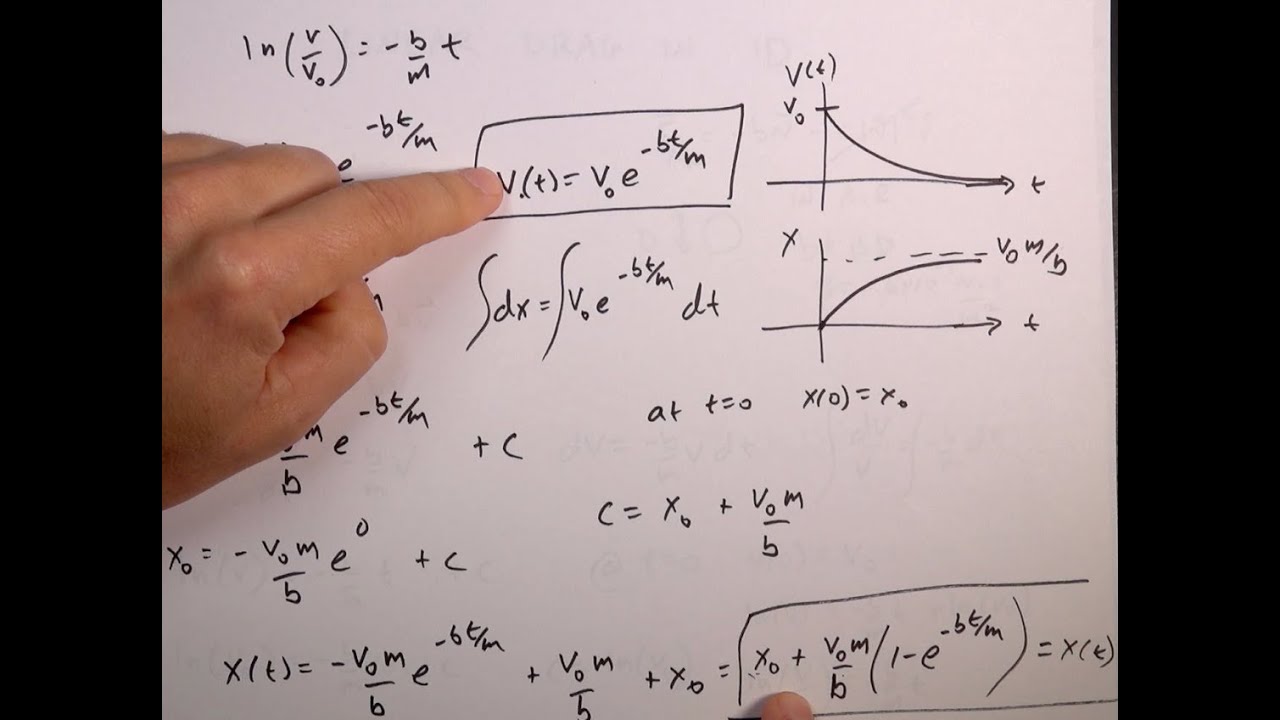 ln(v/v₀) = -b/m t
e^(-bt/m)
v(t) = v₀ e^(-bt/m)
∫dx = ∫v₀ e^(-bt/m) dt
V(t)
v₀
t
x
v₀ m/b
t
at t=0 x(0) = x₀
m/b e^(-bt/m) + c
c = x₀ + v₀m/b
x₀ = - v₀m/b e^0 + c
x(t) = -v₀m/b e^(-bt/m) + v₀m/b + x₀ = x₀ + v₀m/b (1-e^(-bt/m)) = x(t)